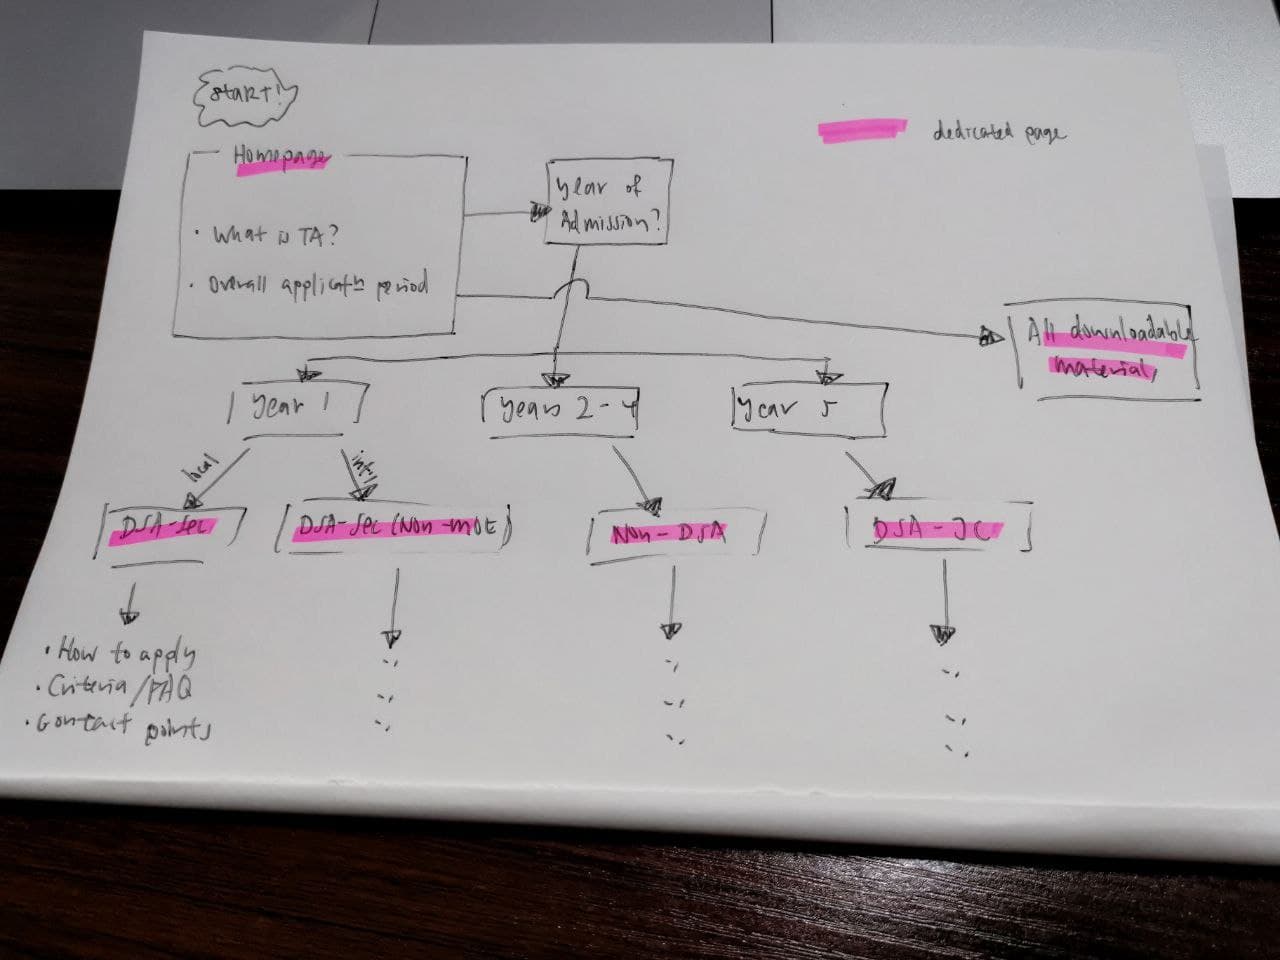 START!
dedicated page
Homepage
• What is TA?
• Overall applicatn period
Year of
Admission?
All downloadable
material,
Year 1
Years 2-4
Year 5
local
int'l
DSA-Sec
DSA-Sec (Non-MOE)
Non-DSA
DSA-JC
• How to apply
• Criteria/FAQ
• Contact points